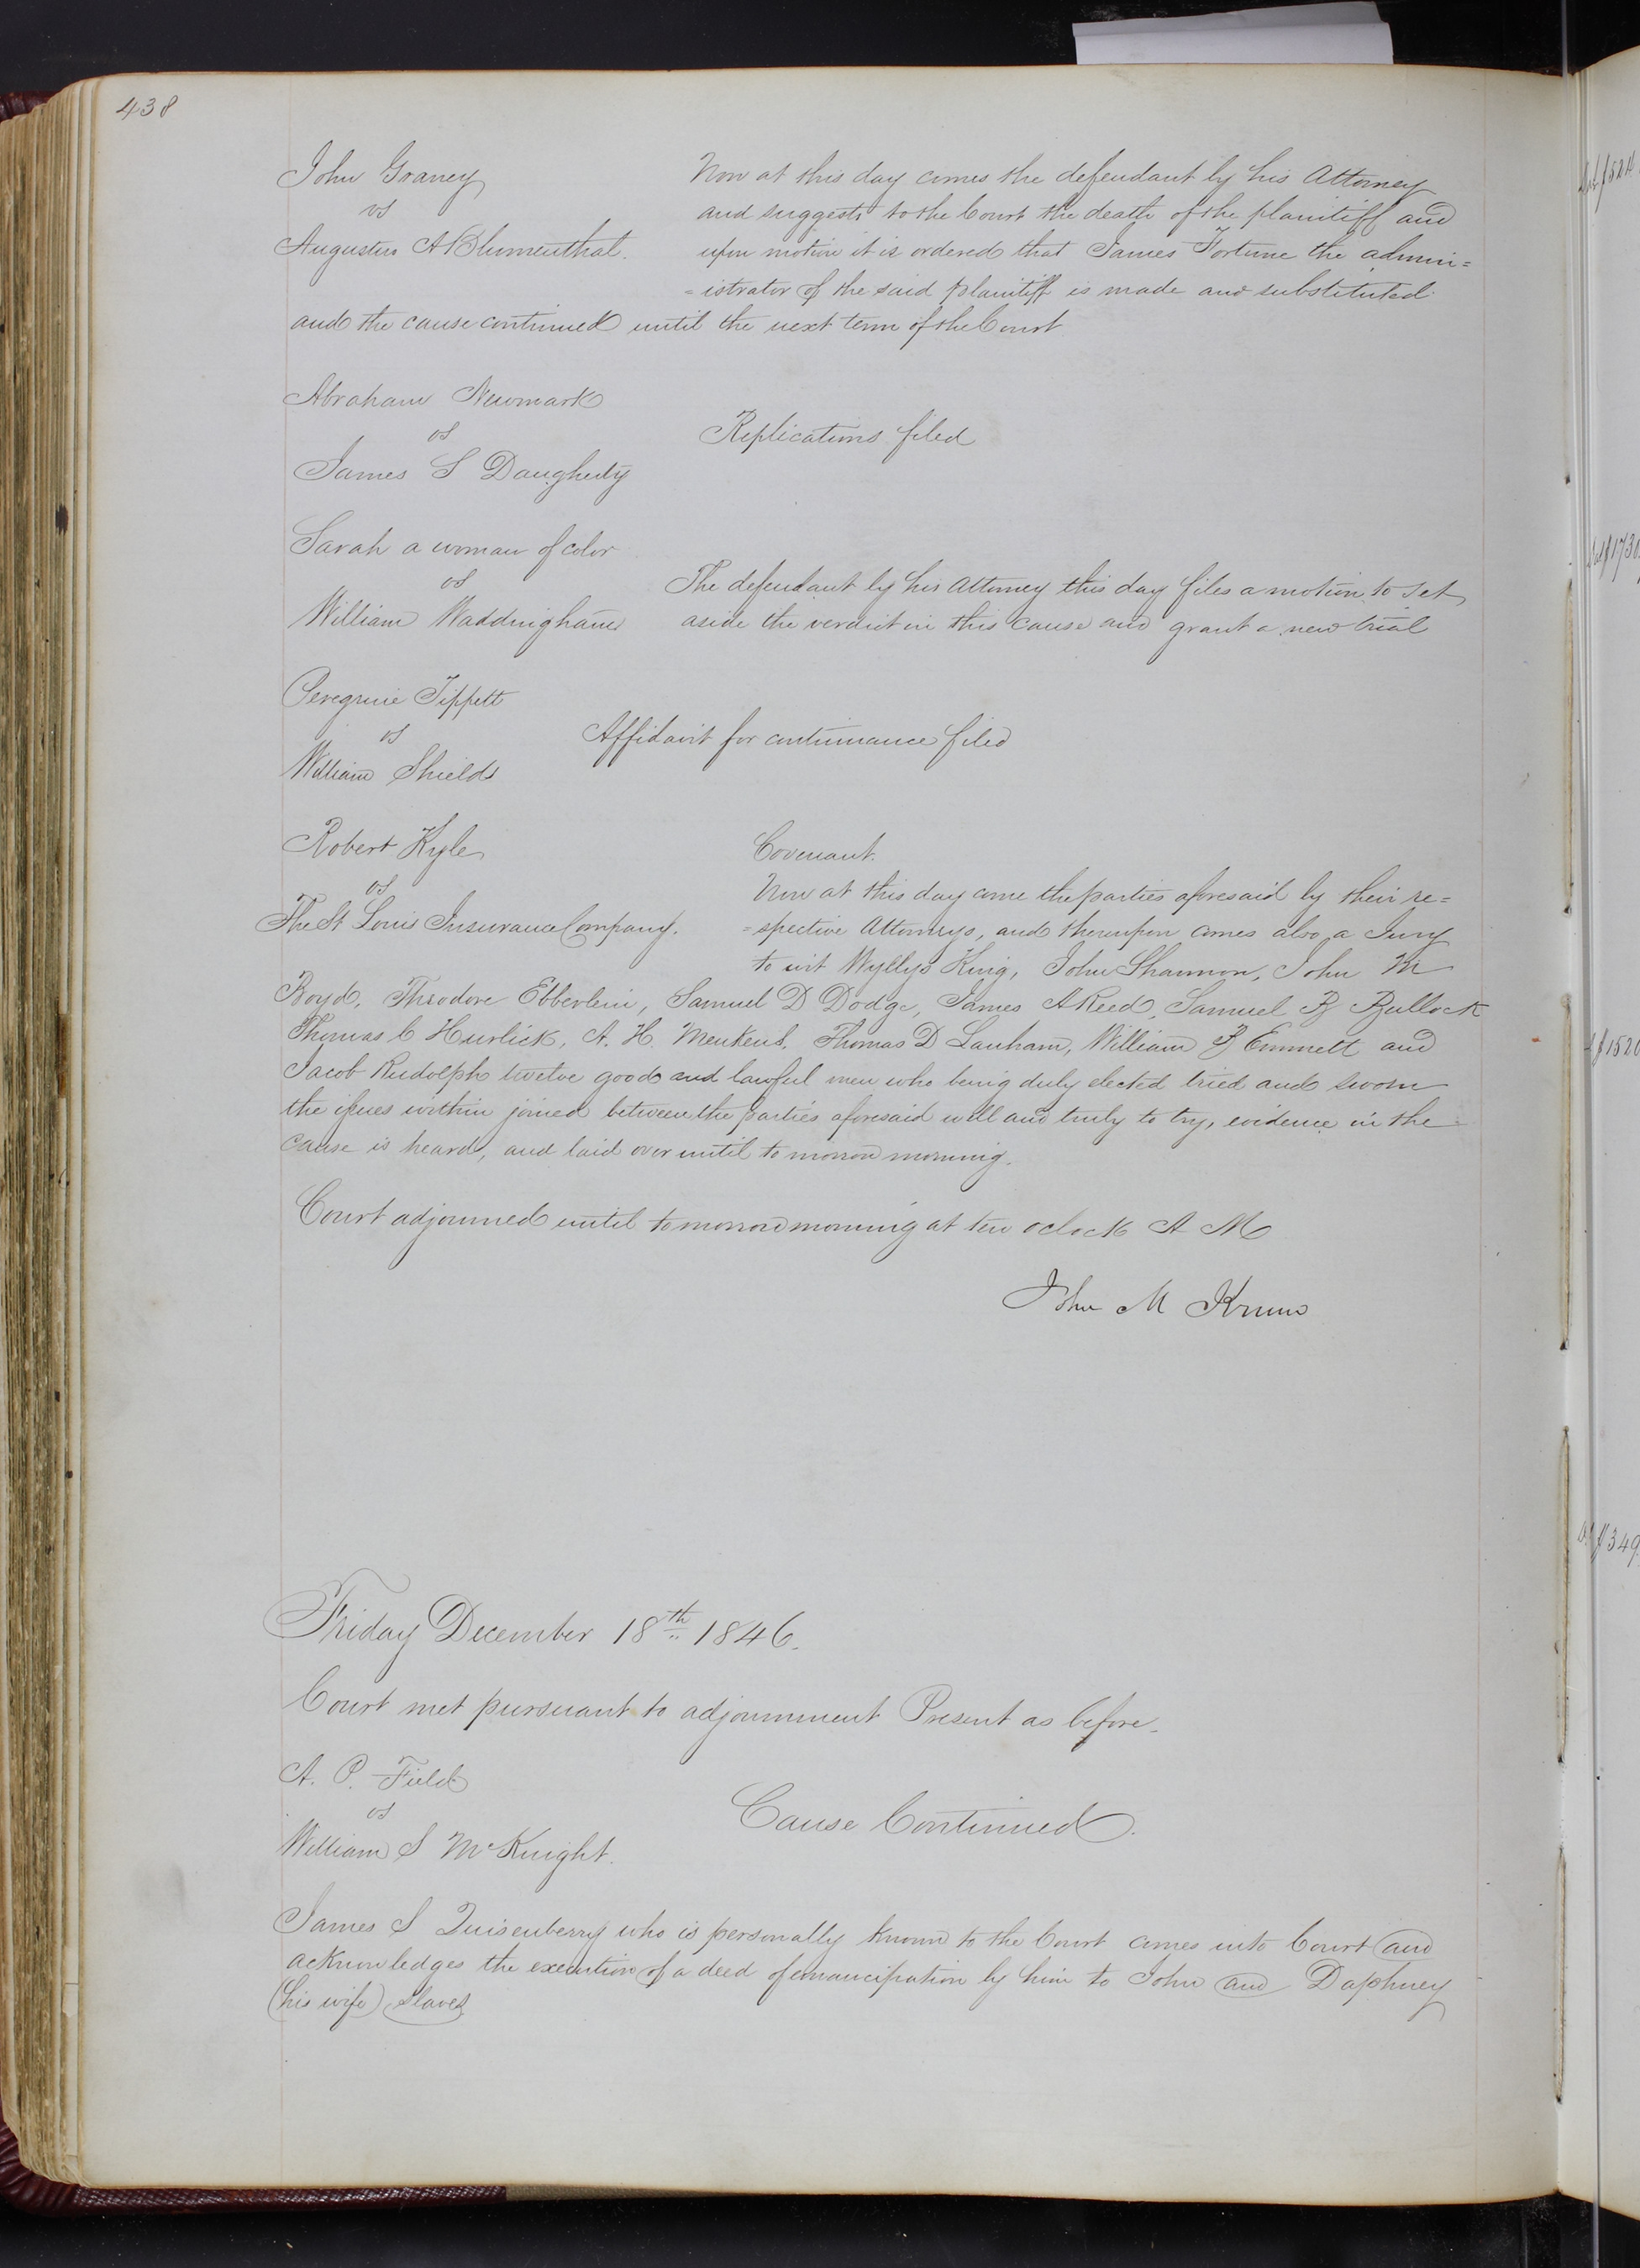 438
John Graney
vs
Augustus A Blumenthal.
Now at this day comes the defendant by his Attorney
and suggests to the Court the death of the plaintiff and
upon motion it is ordered that James Fortune the admin=
=istrator of the said plaintiff is made and substituted
and the cause continued until the next term of the Court
Abraham Newmark
vs
James S Daugherty
Replications filed
Sarah a woman of color
vs
William Waddingham
The defendant by his Attorney this day files a motion to set
aside the verdict in this cause and grant a new trial
Peregrine Tippett
vs
William Shields
Affidavit for continuance filed
Robert Kyle
vs
The St Louis Insurance Company.
Covenant.
Now at this day come the parties aforesaid by their re=
=spective Attorneys, and thereupon comes also a Jury
to wit Wyllys King, John Shannon, John M
Boyd, Theodore Ebberlein, Samuel D Dodge, James A Reed, Samuel B Bullock
Thomas C Hurlick, A. H. Menkens, Thomas D Lanham, William B Emmett and
Jacob Rudolph twelve good and lawful men who being duly elected tried and sworn
the issues within joined between the parties aforesaid well and truly to try, evidence in the
cause is heard, and laid over until to morrow morning.
Court adjourned until tomorrow morning at ten oclock A M
John M Krum
Friday December 18th 1846.
Court met pursuant to adjournment Present as before.
A. P. Field
vs
William S McKnight.
Cause Continued.
James S Quisenberry who is personally known to the Court comes into Court and
acknowledges the execution of a deed of emancipation by him to John and Daphney
(his wife) slaves